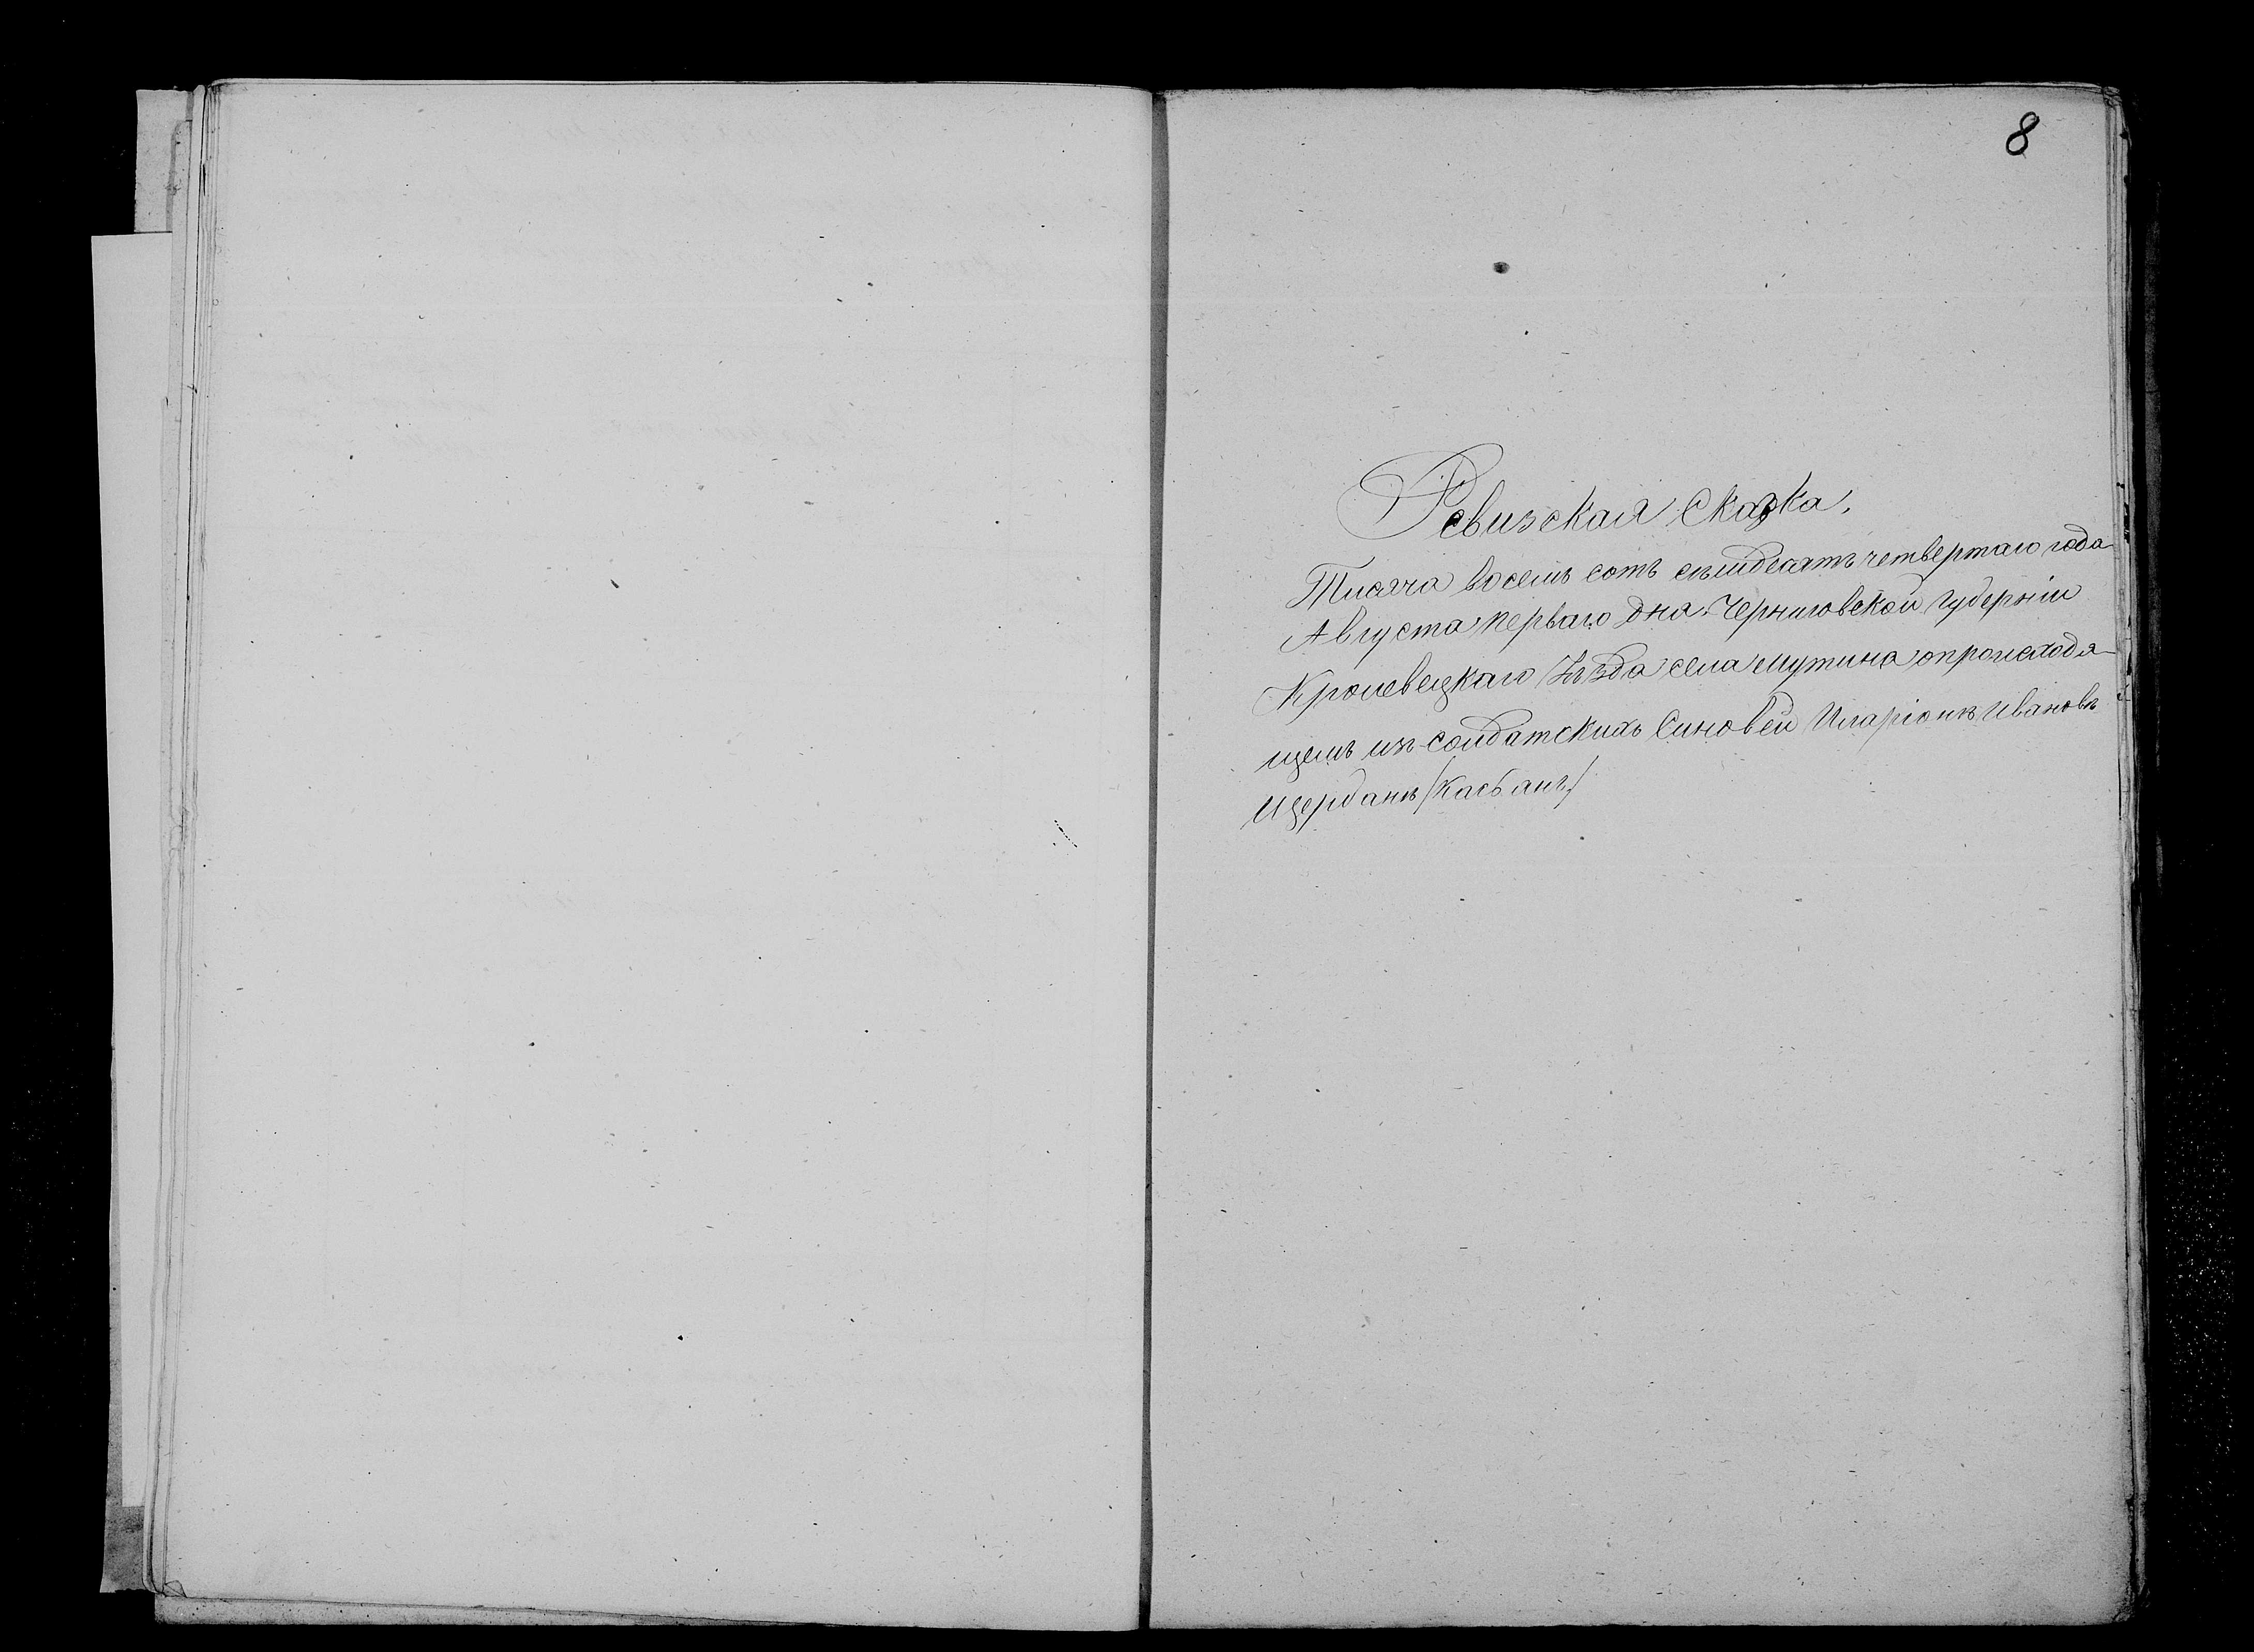 8
Ревизская Сказка,
Тисяча восемь сотъ съмдесятъ четвертаго года
Августа перваго дня Черниговской Губерніи
Кролевецкаго Уѣзда села Мутина о происходя-
щемъ изъ солдатскихъ Синовей Иларіонѣ Ивановѣ
/Касбанъ/